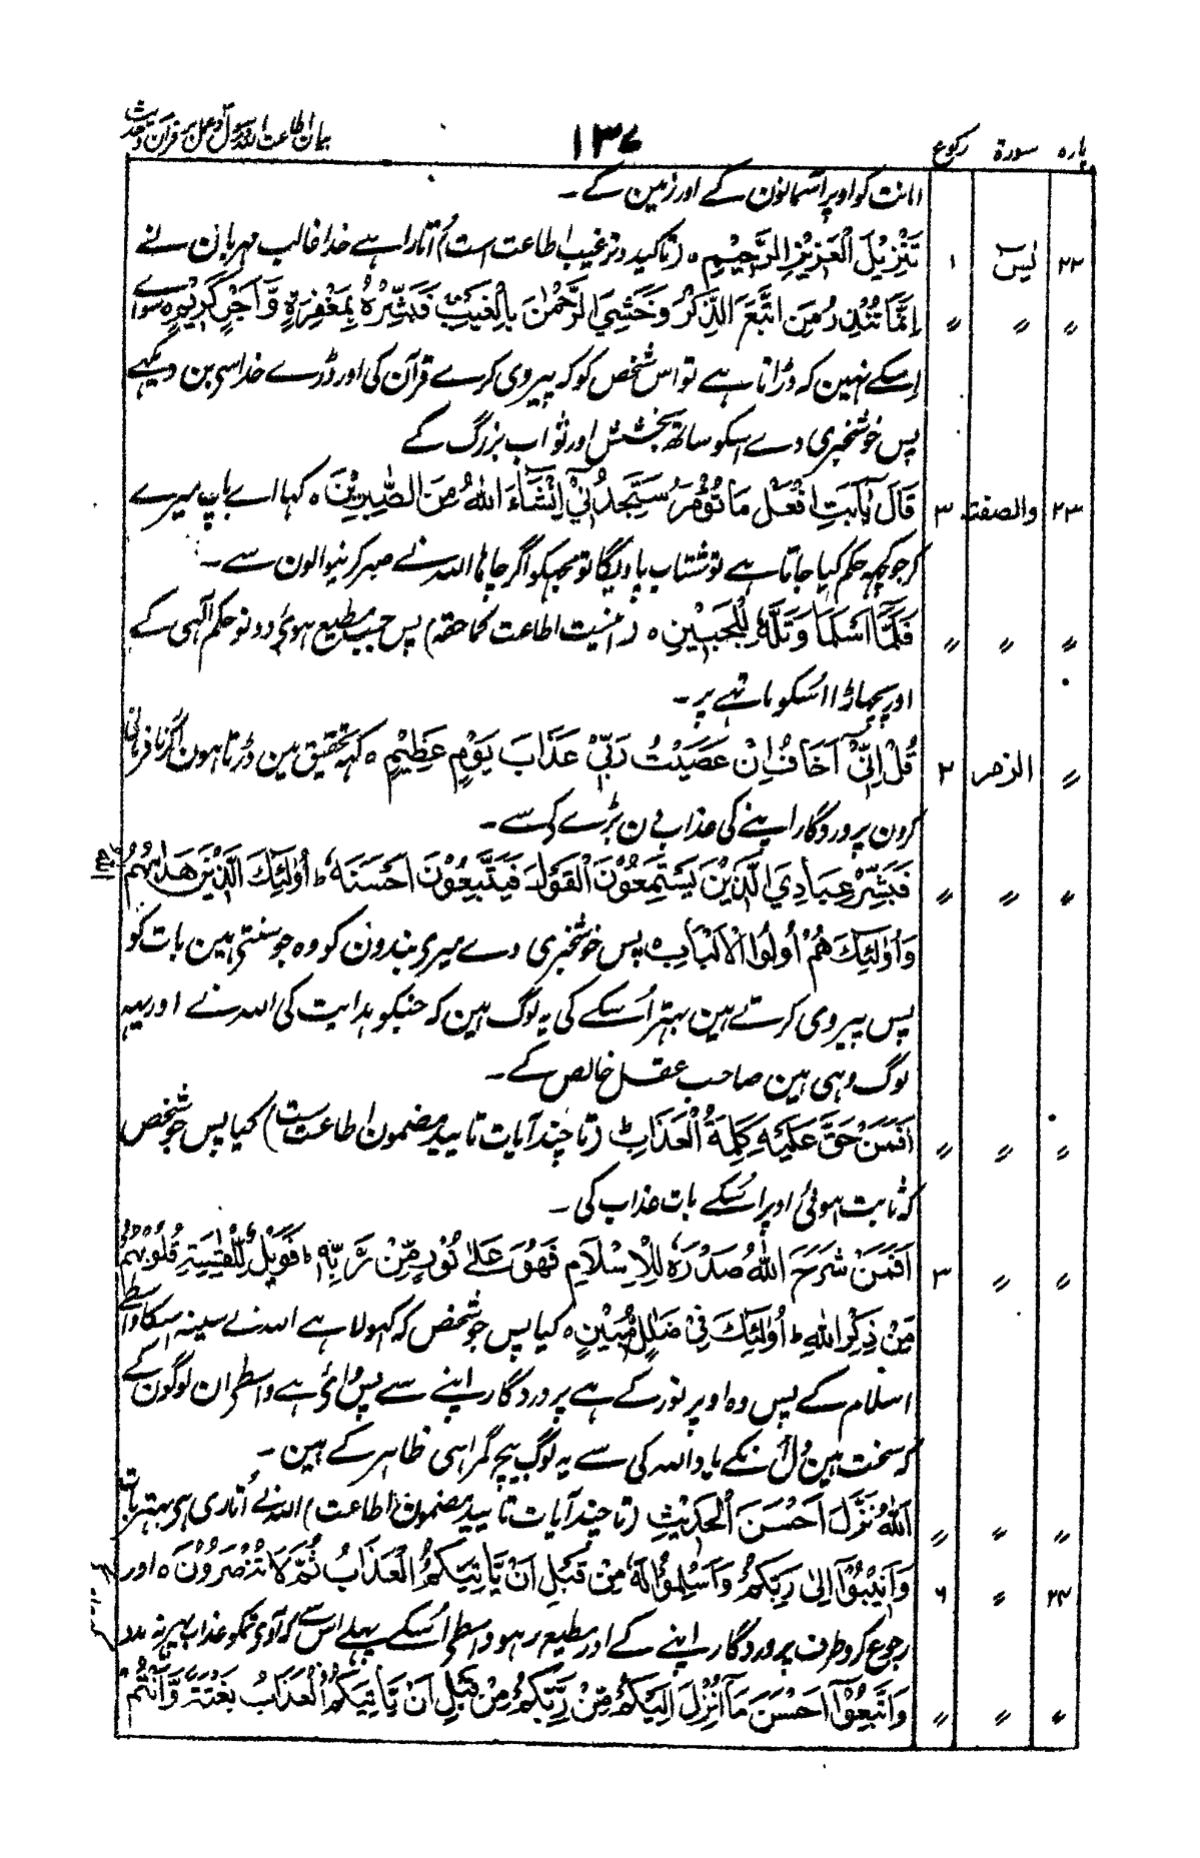 پارہ سورۃ رکوع ١٣٧ بیان اطاعت اللہ ورسول وعمل بر قرآن وحدیث
امانت کو اوپر آسمانون کے اور زمین کے ۔
٢٢ یٰس ١ تَنْزِیْلَ الْعَزِیْزِ الرَّحِیْمِ ہ (تاکید وترغیب اطاعت است) اُتارا ہے خدا غالب مہربان نے
〃 〃 〃 اِنَّمَا تُنْذِرُ مَنِ اتَّبَعَ الذِّکْرَ وَخَشِیَ الرَّحْمٰنَ بِالْغَیْبِ فَبَشِّرْهُ بِمَغْفِرَةٍ وَّاَجْرٍ کَرِیْمٍ ہ سوائے
اِسکے نہین کہ ڈراتا ہے تو اس شخص کو کہ پیروی کرے قرآن کی اور ڈرے خدا سی بن دیکہے
پس خوشخبری دے اسکو ساتھ بخشش اور ثواب بزرگ کے
٢٣ والصفت ٣ قَالَ یٰۤاَبَتِ افْعَلْ مَا تُؤْمَرُ سَتَجِدُنِیْۤ اِنْشَآءَ اللّٰهُ مِنَ الصّٰبِرِیْنَ ہ کہا اے باپ میرے
کر جو کچہہ حکم کیا جاتا ہے تو شتاب پاویگا تو مجہکو اگر چاہا اللہ نے صبر کرنیوالون سے ۔
〃 〃 〃 فَلَمَّاۤ اَسْلَمَا وَتَلَّهٗ لِلْجَبِیْنِ ہ (اینست اطاعت کما حقہ) پس جب مطیع ہوئے دونو حکم آلہی کے
اور پچہاڑا اسکو ماتہے پر ۔
〃 الزمر ٢ قُلْ اِنِّیْۤ اَخَافُ اِنْ عَصَیْتُ رَبِّیْ عَذَابَ یَوْمٍ عَظِیْمٍ ہ کہہ تحقیق مین ڈرتا ہون اگر نافرمانی
کرون پروردگار اپنے کی عذاب دن بڑے کے سے ۔
〃 〃 〃 فَبَشِّرْ عِبَادِیَ الَّذِیْنَ یَسْتَمِعُوْنَ الْقَوْلَ فَیَتَّبِعُوْنَ اَحْسَنَهٗ ط اُولٰٓئِكَ الَّذِیْنَ هَدٰىهُمُ اللّٰهُ
وَاُولٰٓئِكَ هُمْ اُولُوا الْاَلْبَابِ ہ پس خوشخبری دے میری بندون کو وہ جو سنتی ہین بات کو
پس پیروی کرتے ہین بہتر اُسکے کی یہ لوگ ہین کہ جنکو ہدایت کی اللہ نے اور یہہ
لوگ وہی ہین صاحب عقل خالص کے ۔
〃 〃 〃 اَفَمَنْ حَقَّ عَلَیْهِ کَلِمَةُ الْعَذَابِ ط (تا چند آیات تایید مضمون اطاعت ست) کیا پس جو شخص
کہ ثابت ہوئی اوپر اُسکے بات عذاب کی ۔
〃 〃 ٣ اَفَمَنْ شَرَحَ اللّٰهُ صَدْرَهٗ لِلْاِسْلَامِ فَهُوَ عَلٰی نُوْرٍ مِّنْ رَّبِّهٖ ط فَوَیْلٌ لِّلْقٰسِیَةِ قُلُوْبُهُمْ
مِّنْ ذِکْرِ اللّٰهِ ط اُولٰٓئِكَ فِیْ ضَلٰلٍ مُّبِیْنٍ ہ کیا پس جو شخص کہ کہولا ہے اللہ نے سینہ اسکا واسطے
اسلام کے پس وہ اوپر نور کے ہے پروردگار اپنے سے پس وائے ہے واسطے ان لوگون کے
کہ سخت ہین دل اُنکے یاد اللہ کی سے یہ لوگ بیچ گمراہی ظاہر کے ہین ۔
〃 〃 〃 اَللّٰهُ نَزَّلَ اَحْسَنَ الْحَدِیْثِ (تا چند آیات تایید مضمون اطاعت) اللہ نے اُتاری ہی بہتر بات
٢٤ 〃 ٦ وَاَنِیْبُوْۤا اِلٰی رَبِّکُمْ وَاَسْلِمُوْا لَهٗ مِنْ قَبْلِ اَنْ یَّاْتِیَکُمُ الْعَذَابُ ثُمَّ لَا تُنْصَرُوْنَ ہ اور
رجوع کرو طرف پروردگار اپنے کے اور مطیع رہو واسطے اُسکے پہلے اس سے کہ آوے تمکو عذاب پہر نہ مدد
〃 〃 〃 وَاتَّبِعُوْۤا اَحْسَنَ مَاۤ اُنْزِلَ اِلَیْکُمْ مِّنْ رَّبِّکُمْ مِّنْ قَبْلِ اَنْ یَّاْتِیَکُمُ الْعَذَابُ بَغْتَةً وَّاَنْتُمْ